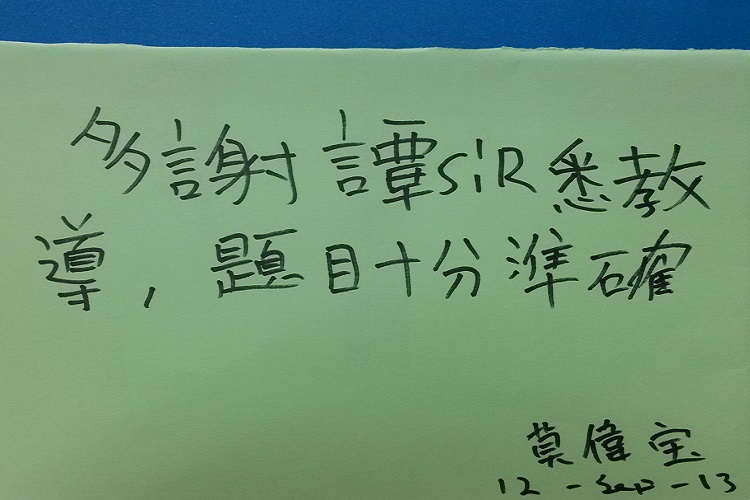 多謝譚SiR悉教
導，題目十分準確
莫偉宝
12-Sep-13